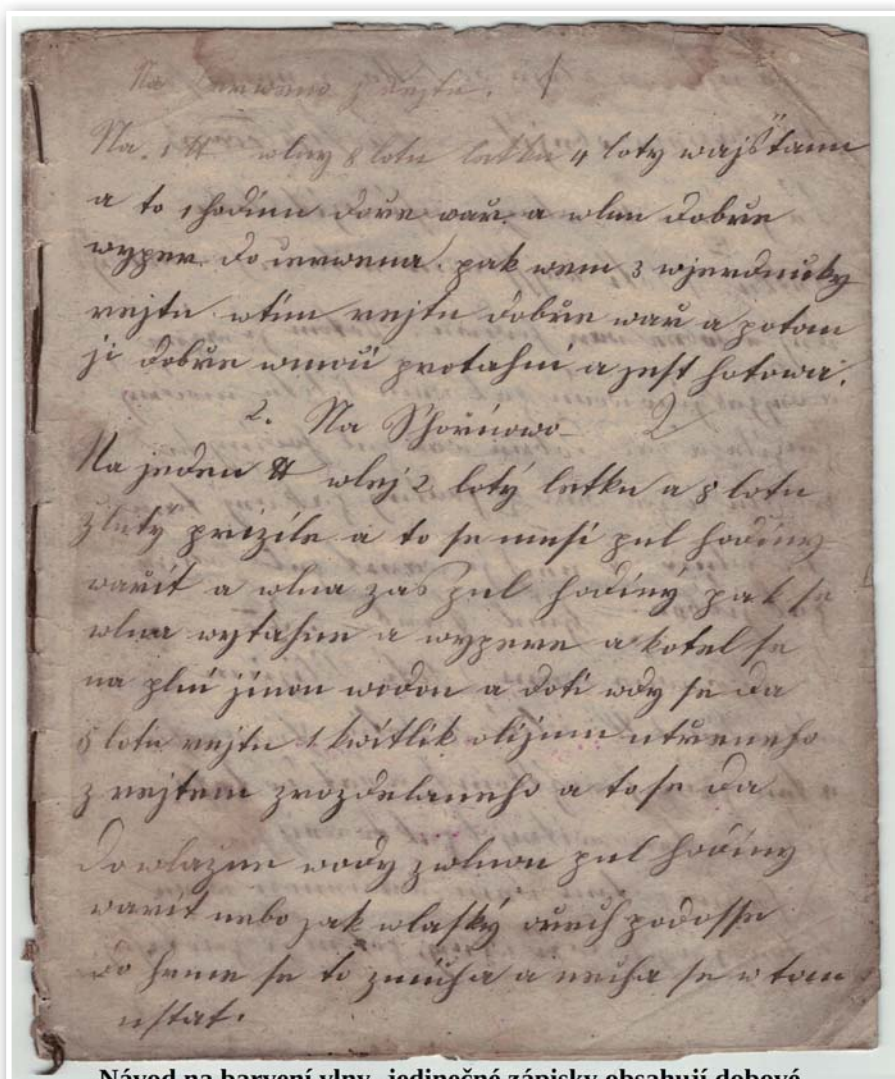 Na červeno z rejtu. 1
Na 1 ℔ wlny 8 lotu letku 4 loty wajštanu
a to 1 hodinu dobře wař a wlnu dobře
wyper do červena pak wem 3 wjerdunky
rejtu wtim rejtu dobře wař a potom
ji dobře protahni a jest hotowa.
2. Na Skořicowo 2
Na jeden ℔ wlej 2 lotý letku a 8 lotu
žlutý prizile a to se musi pul hodiny
wařit a wlna zas pul hodiný pak se
wlna wytahne a wypere a kotel se
na plni jinou wodou a doti wdy se da
8 lotu rejtu 1 kwitlik utřeneho
z rejtem zrozdelaneho a to se da
do wlažne wody z wlnou pul hodiny
wařit nebo jak wlaský ořech
do hrnce se to a necha se w tom
ustat.
Návod na barvení vlny, jedinečné zápisky obsahují dobové